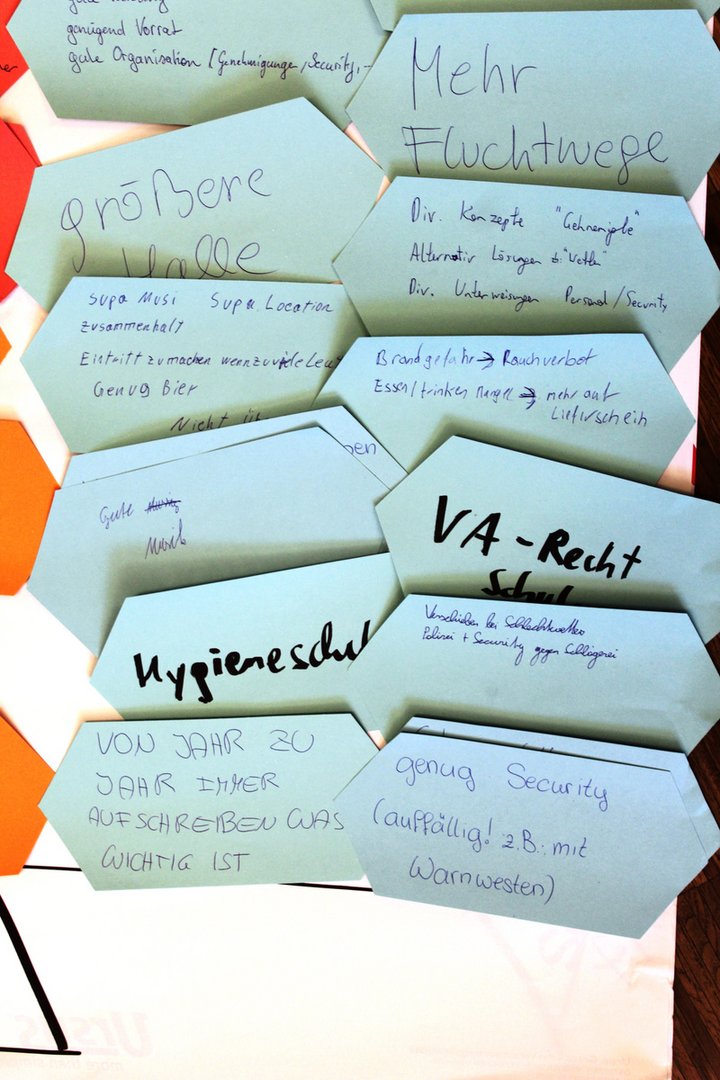 genügend Vorrat
gute Organisation [Genehmigungen, Security, -
Mehr
Fluchtwege
größere
Halle
Div. Konzepte
Alternativ Lösungen
Div. Unterweisungen Personal/Security
Supa Musi Supa Location
Zusammenhalt
Eintritt zu machen wenn zu viele Leut
Genug Bier
Nicht
Brandgefahr → Rauchverbot
Essen/trinken Mangel → mehr auf
Lieferschein
ben
Gute
Musik
VA-Recht
Schul
Hygieneschul
Verschieben bei Schlechtwetter
Polizei + Security gegen Schlägerei
VON JAHR ZU
JAHR IMMER
AUFSCHREIBEN WAS
WICHTIG IST
genug Security
(auffällig! z.B. mit
Warnwesten)